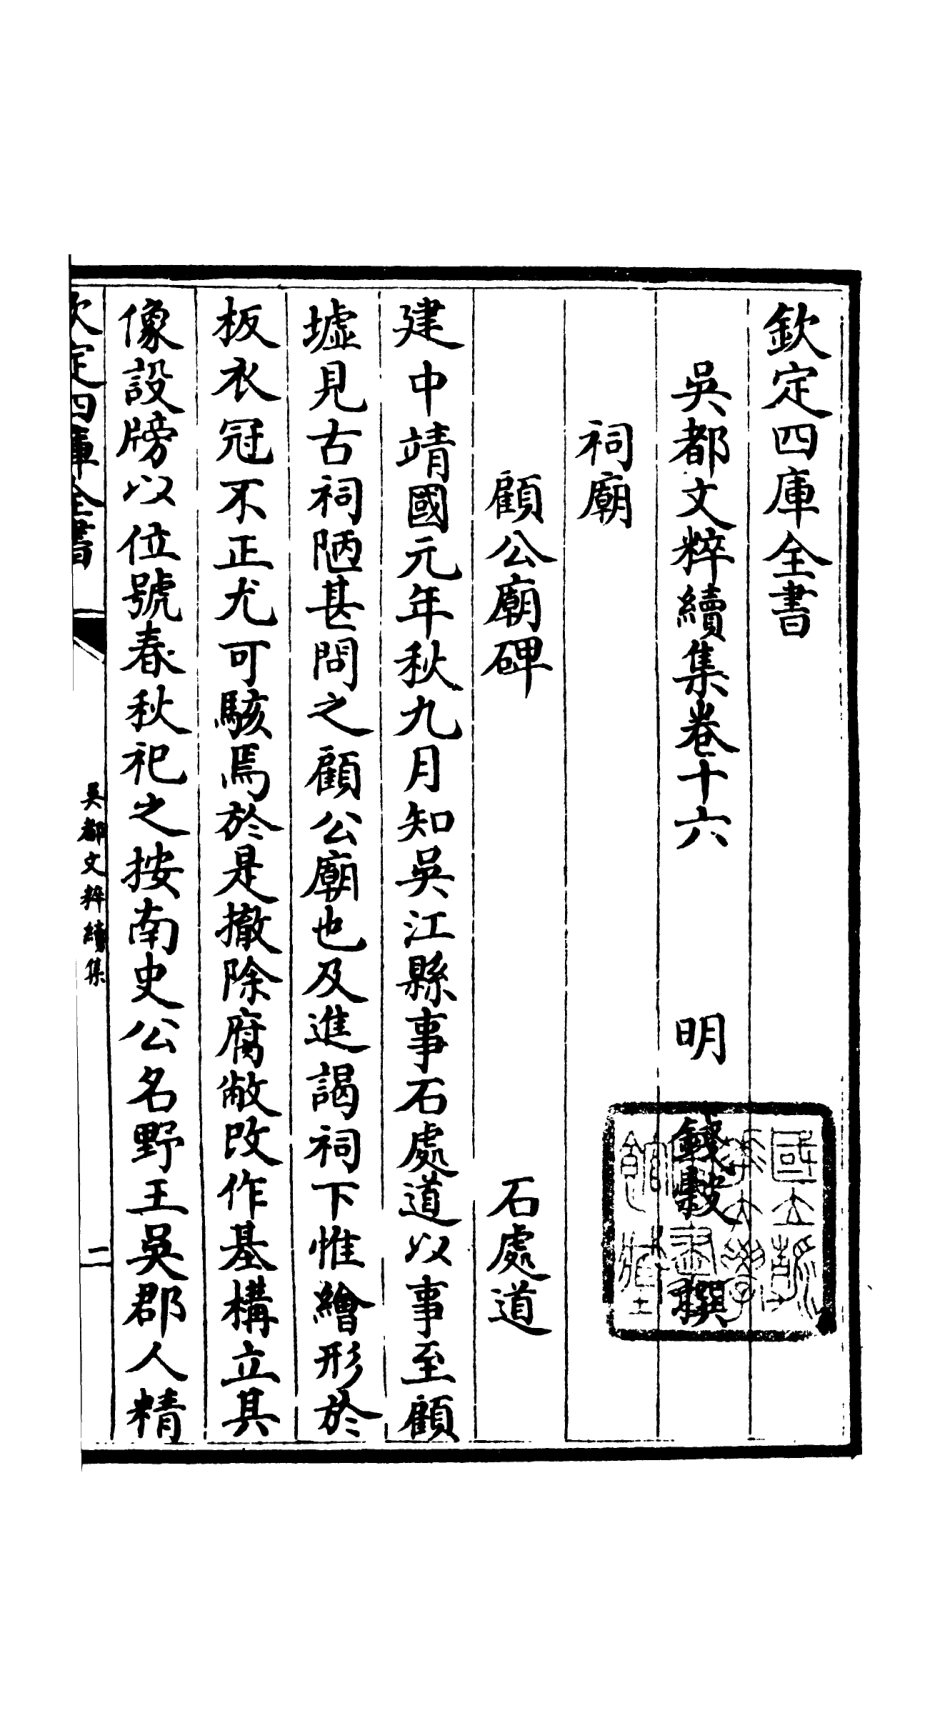 欽定四庫全書
吳都文粹續集卷十六　明　錢穀　撰
祠廟
顧公廟碑　石處道
建中靖國元年秋九月知吳江縣事石處道以事至顧
墟見古祠陋甚問之顧公廟也及進謁祠下惟繪形於
板衣冠不正尤可駭焉於是撤除腐敝改作基構立其
像設牓以位號春秋祀之按南史公名野王吳郡人精
欽定四庫全書
吳都文粹續集
二